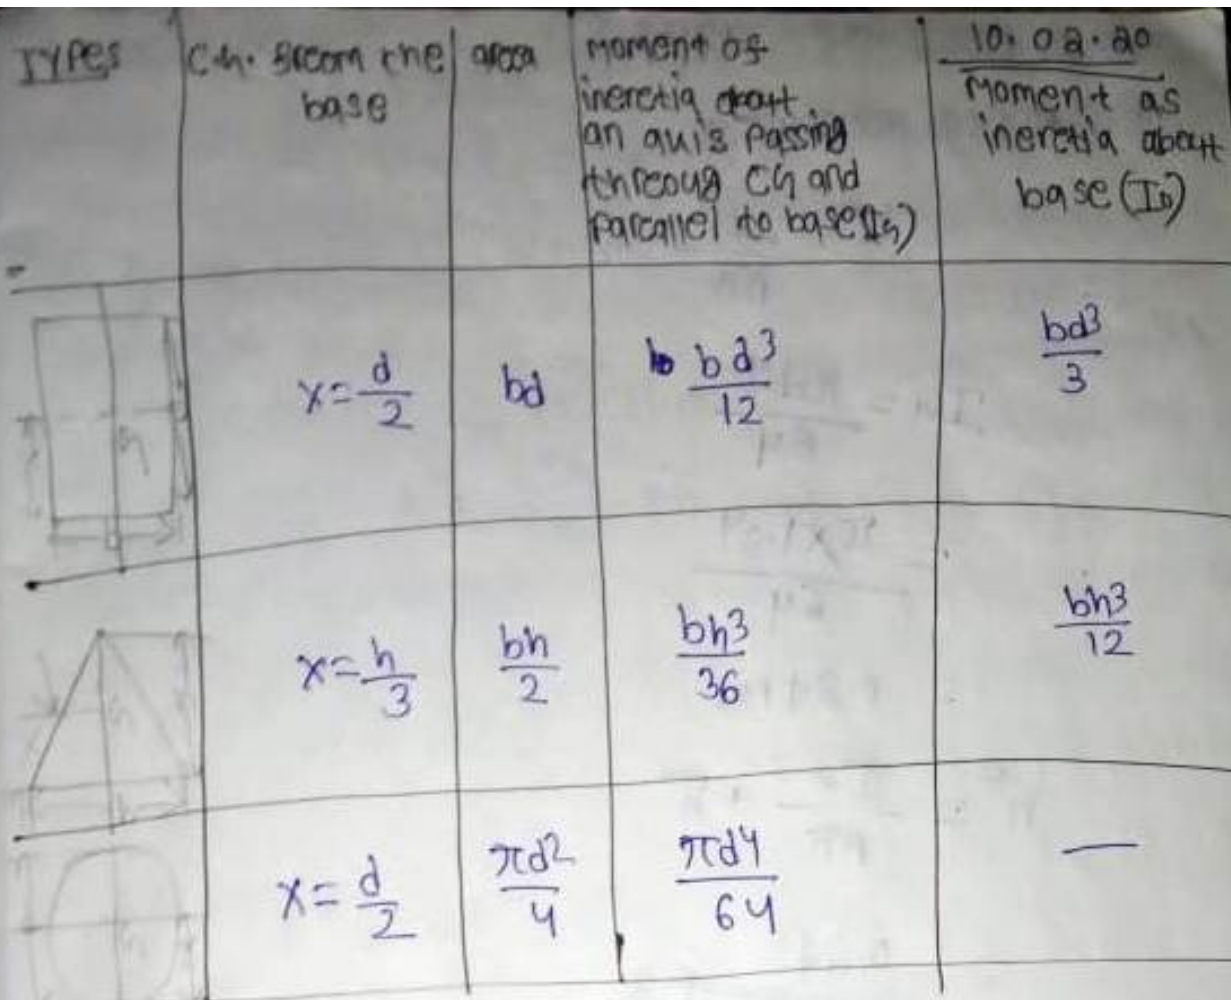 TYPES
C.G. from the
base
area
Moment of
ineretia about
an auis Passing
threoug CG and
Parcallel to base(IG)
10.02.20
Moment as
ineretia about
base (Io)
x = d/2
bd
bd³/12
bd³/3
x = h/3
bh/2
bh3/36
bh3/12
x = d/2
πd2/4
πd4/64
—